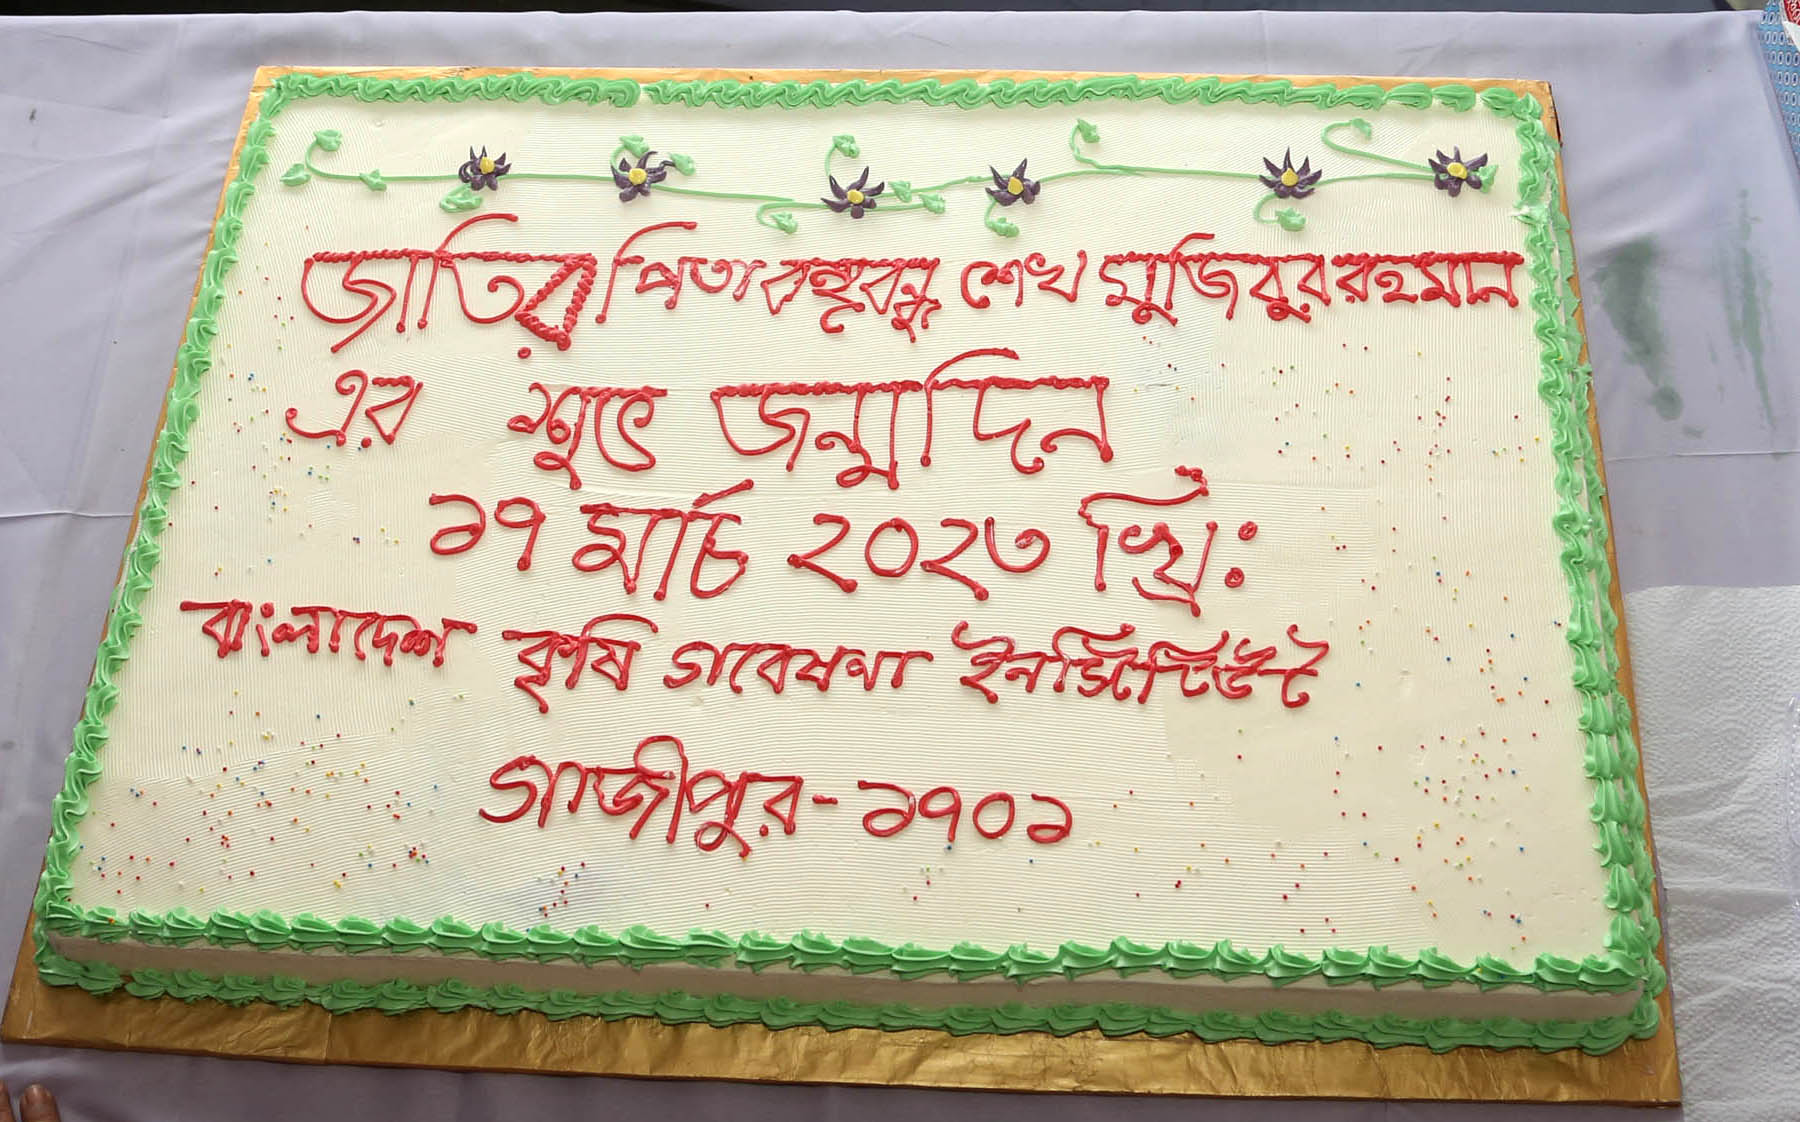 জাতির পিতা বঙ্গবন্ধু শেখ মুজিবুর রহমান
এর শুভ জন্মদিন
১৭ মার্চ ২০২৩ খ্রি:
বাংলাদেশ কৃষি গবেষণা ইনস্টিটিউট
গাজীপুর-১৭০১